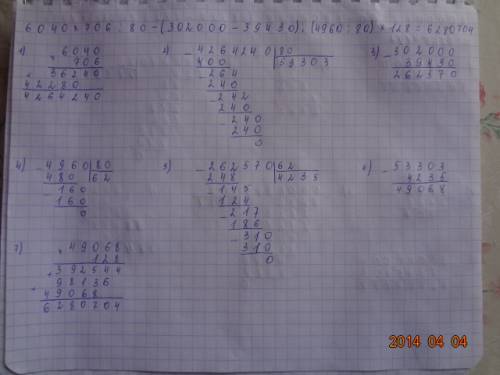 6040×706:80-(302000-39430):(4960:80)×128=6280704
1) × 6040
706
+ 36240
42280
4264240
2) - 4264240 | 80
400 | 53303
- 264
240
- 242
240
- 240
240
0
3) - 302000
39430
262570
4) - 4960 | 80
480 | 62
- 160
160
0
5) - 262570 | 62
248 | 4235
- 145
124
- 217
186
- 310
310
0
6) - 53303
4235
49068
7) × 49068
128
+ 392544
98136
+ 49068
6280704
2014 04 04